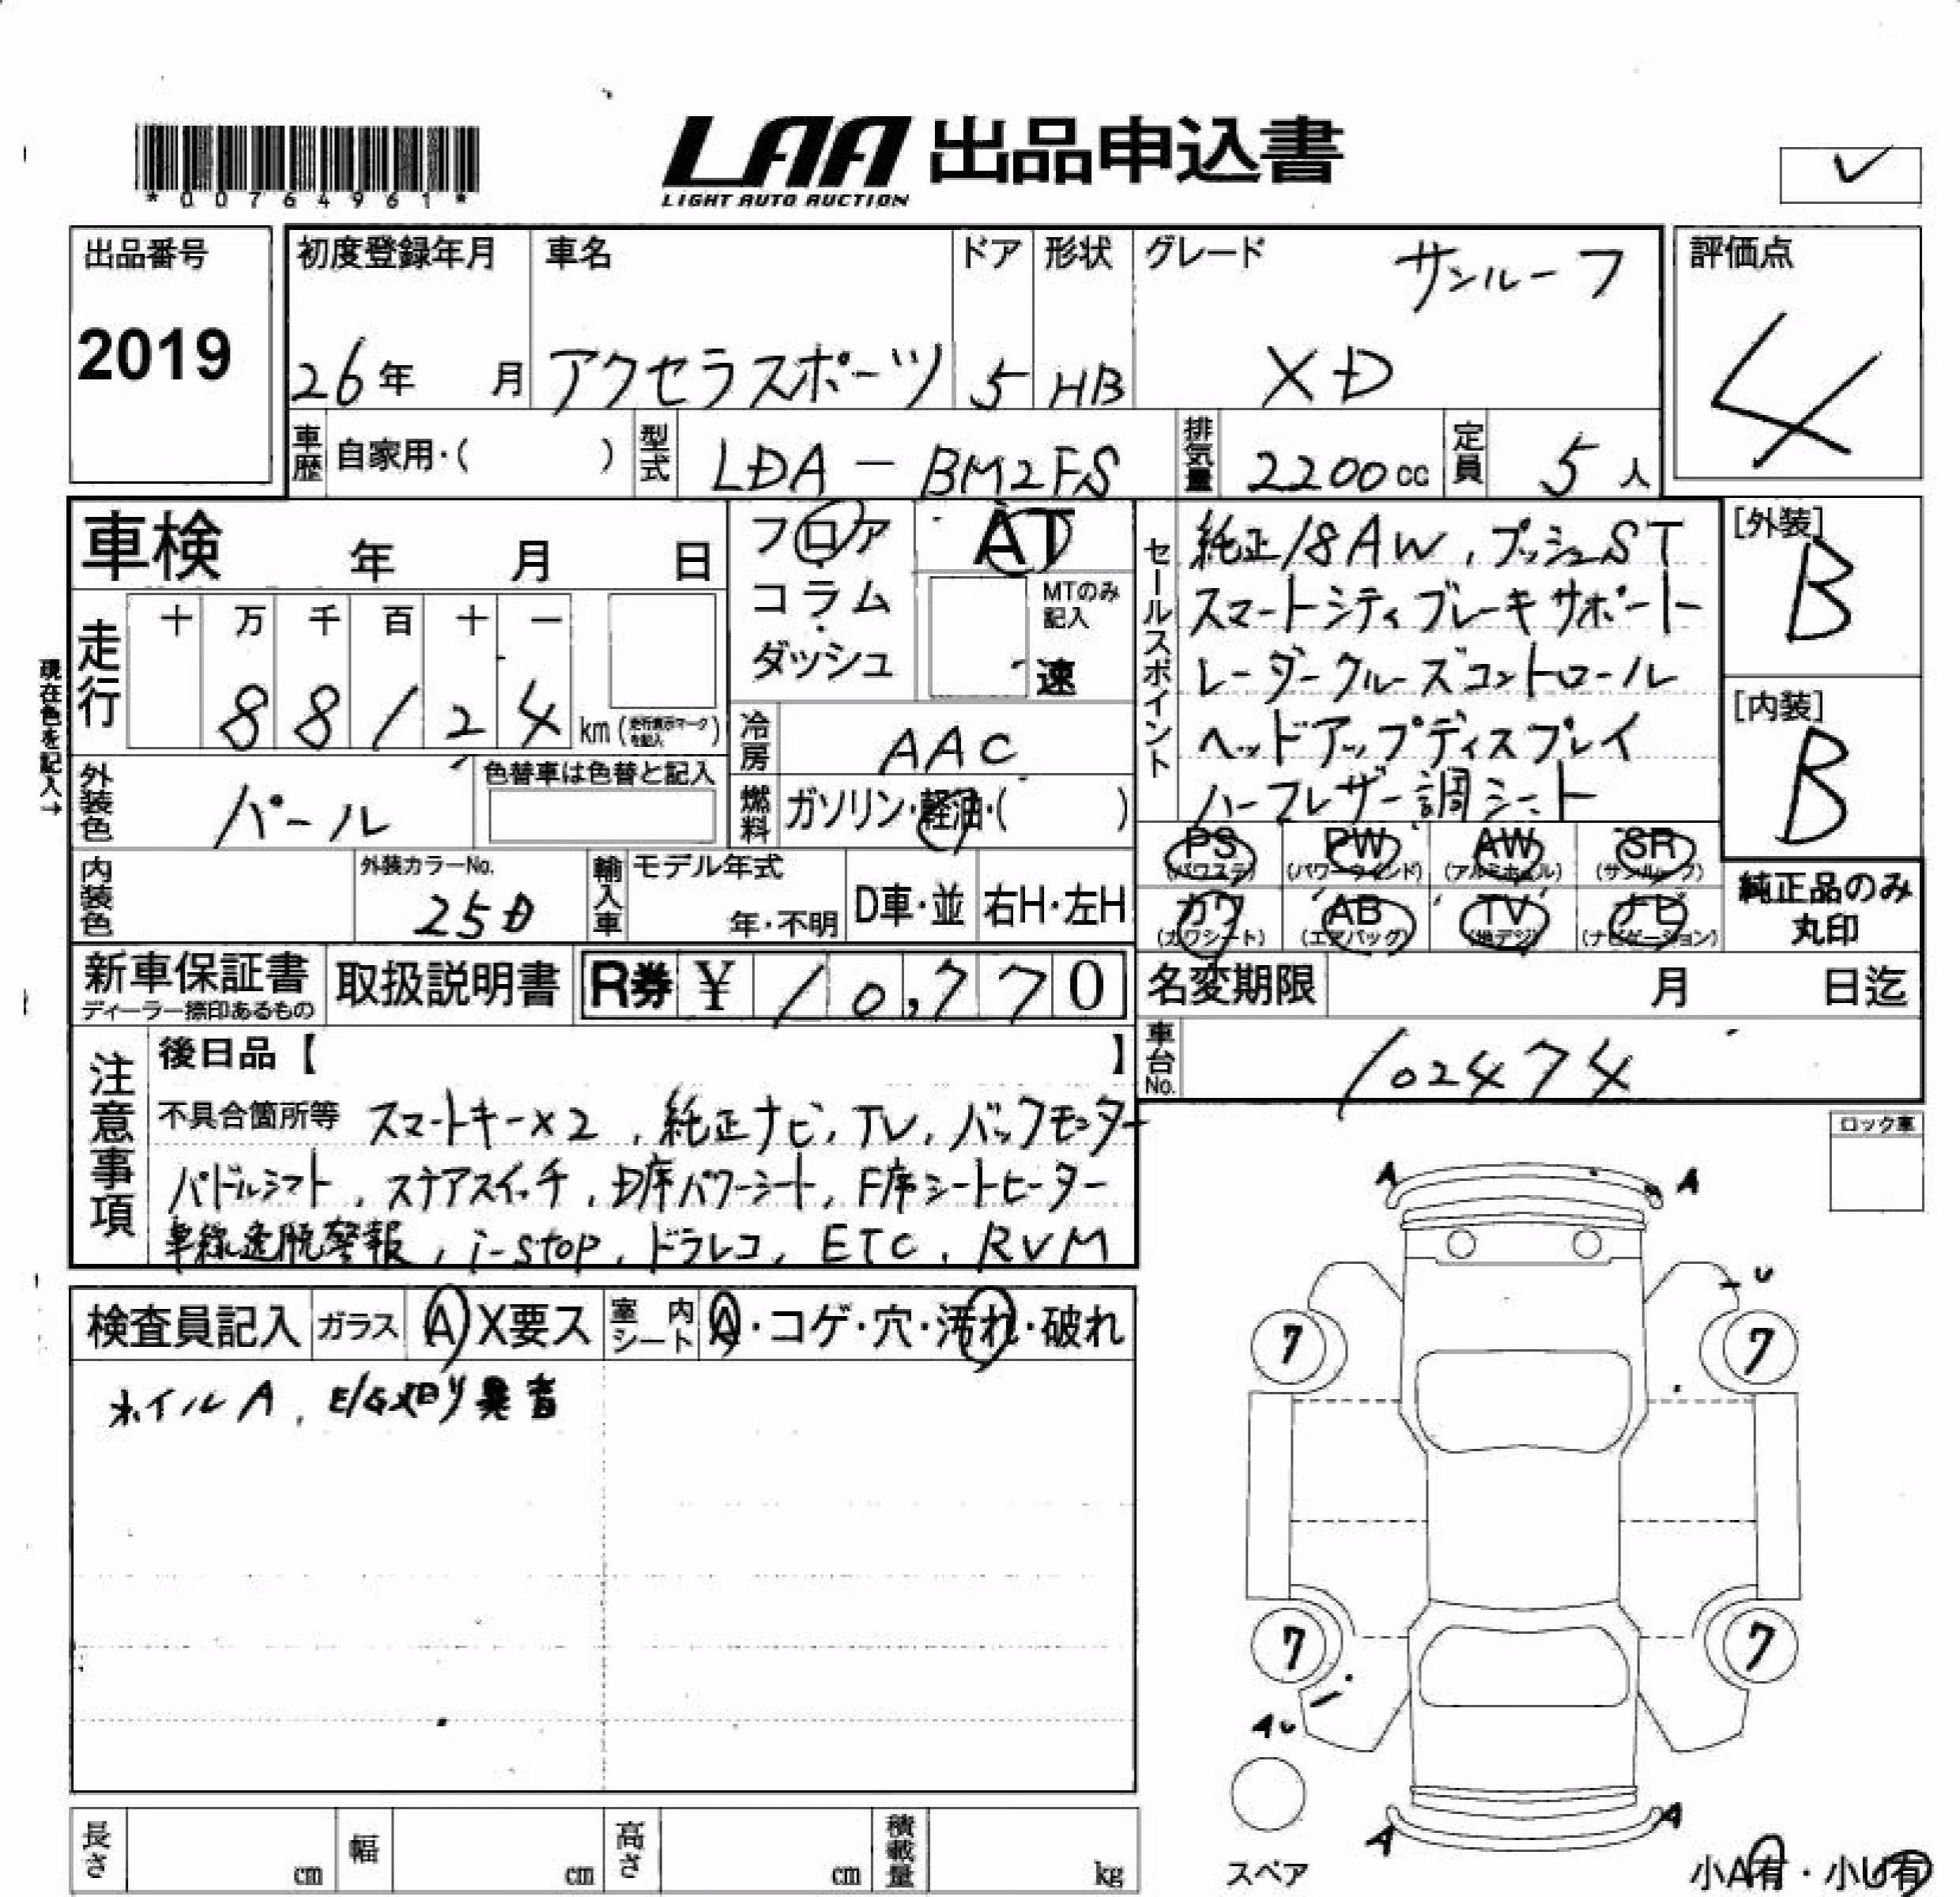 *00764961*
LAA 出品申込書
LIGHT AUTO AUCTION
✓
出品番号
2019
初度登録年月
26年 月
車名
アクセラスポーツ
ドア
5
形状
HB
グレード
サンルーフ
XD
評価点
4
車歴 自家用・( )
型式 LDA - BM2FS
排気量 2200cc
定員 5人
車検 年 月 日
フロア
コラム
ダッシュ
AT
MTのみ記入
速
セールスポイント
純正18AW, プッシュST
スマートシティブレーキサポート
レーダークルーズコントロール
ヘッドアップディスプレイ
ハーフレザー調シート
[外装]
B
[内装]
B
現在色を記入→
走行
十 万 千 百 十 一
8 8 1 2 4 km (走行表示マークを記入)
冷房 AAC
外装色 パール
色替車は色替と記入
燃料 ガソリン・軽油・( )
PS (パワステ) PW (パワーウインド) AW (アルミホイル) SR (サンルーフ)
カワ (カワシート) AB (エアバック) TV (地デジ) ナビ (ナビゲーション)
純正品のみ
丸印
内装色
外装カラーNo.
25D
輸入車
モデル年式
年・不明
D車・並
右H・左H
新車保証書
ディーラー捺印あるもの
取扱説明書
R券 ¥ 10,770
名変期限 月 日迄
車台No. 102474
注意事項
後日品【 】
不具合箇所等 スマートキー×2, 純正ナビ, TV, バックモニター
パドルシフト, ステアスイッチ, D席パワーシート, F席シートヒーター
車線逸脱警報, i-stop, ドラレコ, ETC, RVM
ロック車
検査員記入 ガラス A X要ス 室内シート A・コゲ・穴・汚れ・破れ
ホイルA, E/G廻り異音
A A
U
7 7
7 7
AU
A A
スペア
小A有・小U有
長さ cm 幅 cm 高さ cm 積載量 kg